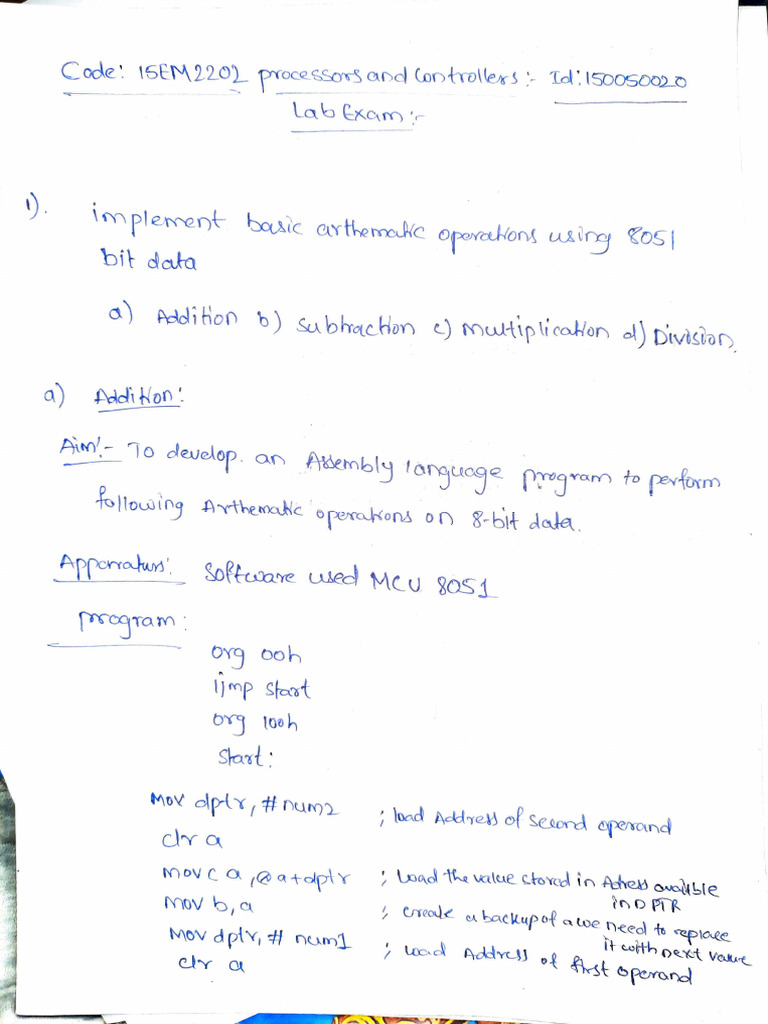 Code: 15EM2202 processors and Controllers:- Id:150050020
Lab Exam:-
1). implement basic arthematic operations using 8051
bit data
a) Addition b) Subtraction c) Multiplication d) Division.
a) Addition:
Aim:- To develop an Assembly language program to perform
following Arthematic operations on 8-bit data.
Apporraturs: Software used MCU 8051
program:
org 00h
ljmp start
org 100h
start:
Mov dptr, #num2 ; load Address of second operand
clr a
movc a,@a+dptr ; Load the value stored in Adress available
in DPTR
mov b,a ; create a backup of a we need to replace
it with next value
Mov dptr, # num1 ; Load Address of first operand
clr a